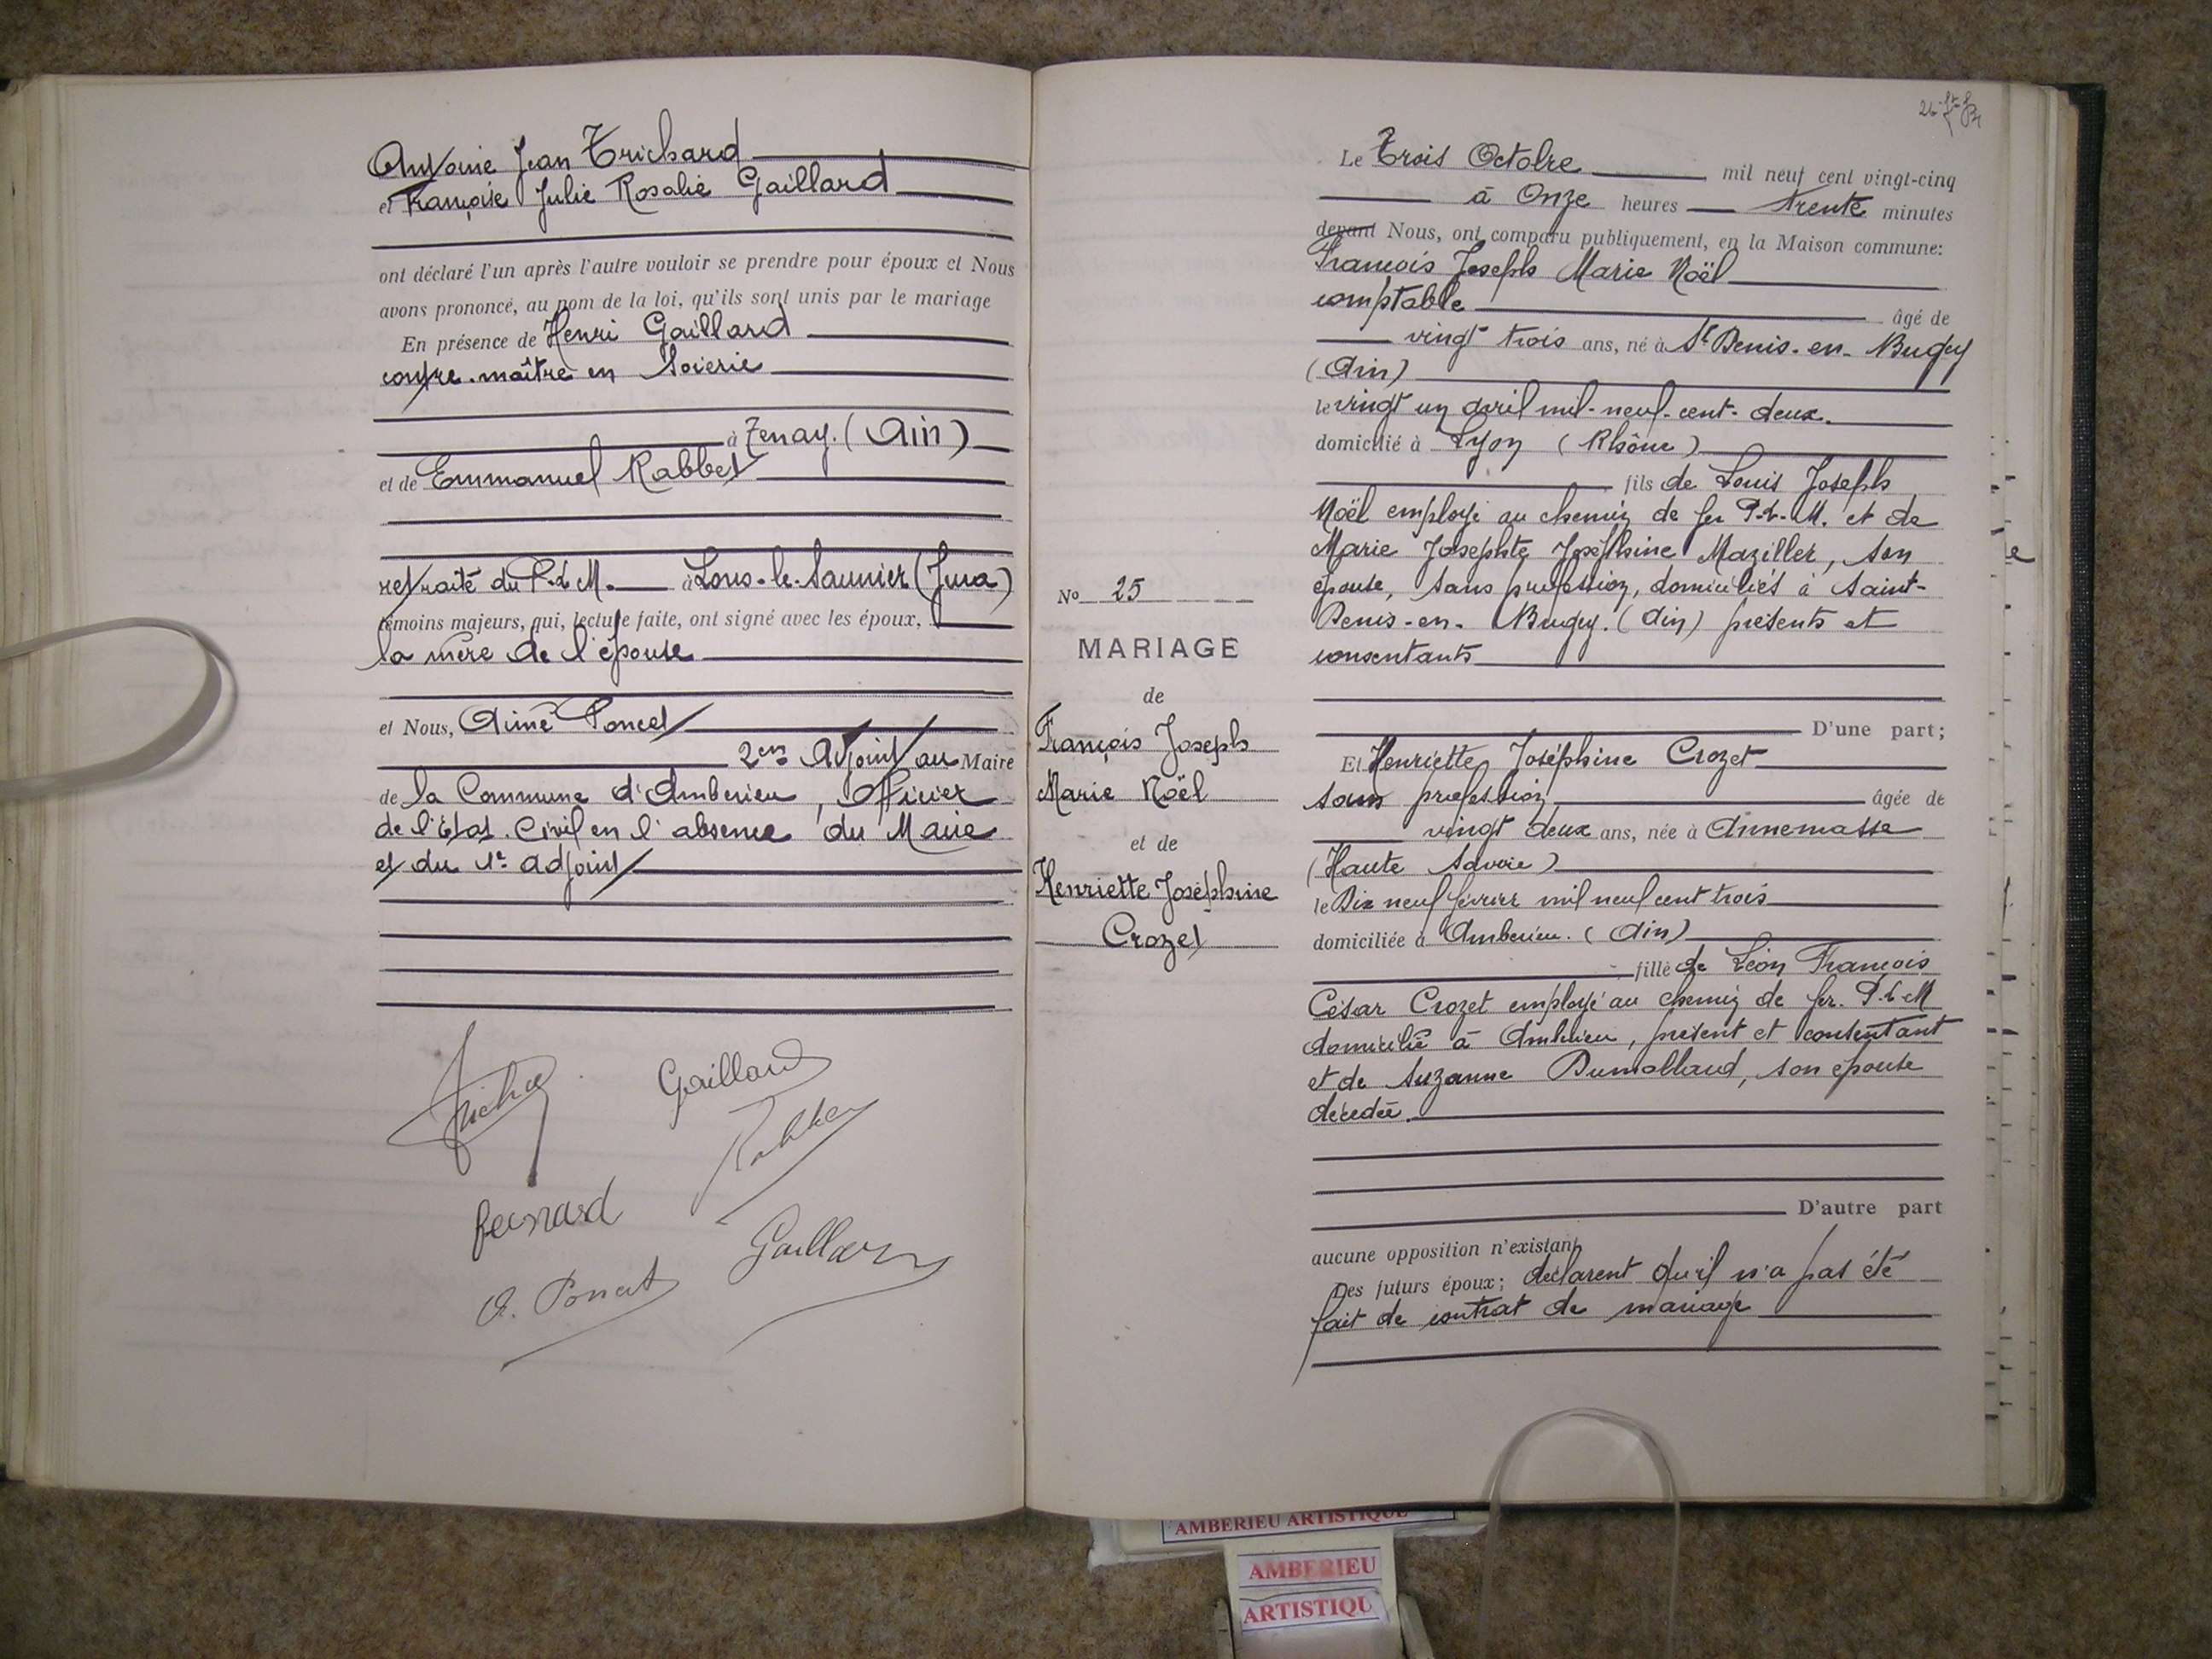 Antoine Jean Trichard
et Françoise Julie Rosalie Gaillard
ont déclaré l'un après l'autre vouloir se prendre pour époux et Nous
avons prononcé, au nom de la loi, qu'ils sont unis par le mariage
En présence de Henri Gaillard
contre-maître en Soierie
à Tenay. (Ain)
et de Emmanuel Rabbet
retraité du P.L.M. à Lons-le-Saunier (Jura)
témoins majeurs, qui, lecture faite, ont signé avec les époux,
la mère de l'épouse
et Nous, Aimé Poncet
2em Adjoint au Maire
de la Commune d'Amberieu, Officier
de l'Etat Civil en l'absence du Maire
et du 1er adjoint
Gaillard
Bernard
Gaillard
A. Poncet
Le Trois Octobre mil neuf cent vingt-cinq
à Onze heures trente minutes
devant Nous, ont comparu publiquement, en la Maison commune:
François Joseph Marie Noël
comptable âgé de
vingt trois ans, né à St Denis-en-Bugey
(Ain)
le vingt un avril mil-neuf-cent-deux.
domicilié à Lyon (Rhône)
fils de Louis Joseph
Noël employé au chemin de fer P.L.M. et de
Marie Josephte Joséphine Maziller, son
épouse, sans profession, domiciliés à Saint-
Denis-en-Bugey. (Ain) présents et
consentants
D'une part;
Nº 25
MARIAGE
de
François Joseph
Marie Noël
et de
Henriette Joséphine
Crozet
Et Henriette Joséphine Crozet
sans profession, âgée de
vingt deux ans, née à Annemasse
(Haute Savoie)
le Dix neuf février mil neuf cent trois
domiciliée à Amberieu. (Ain)
fille de Léon François
César Crozet employé au chemin de fer. P.L.M
domicilié à Amberieu, présent et consentant
et de Suzanne Dumollard, son épouse
décédée.
D'autre part
aucune opposition n'existant
Des futurs époux; déclarent qu'il n'a pas été
fait de contrat de mariage
AMBERIEU ARTISTIQUE
AMBERIEU
ARTISTIQU